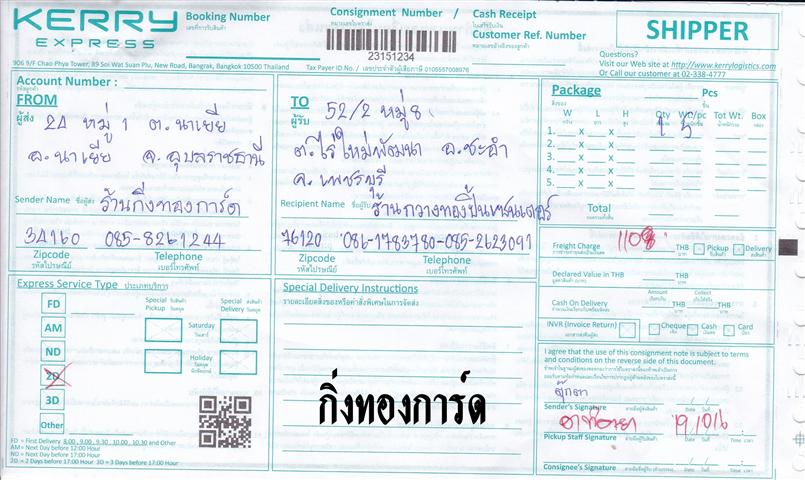 KERRY
EXPRESS
Booking Number
เลขที่การรับสินค้า
Consignment Number / Cash Receipt
หมายเลขใบตราส่ง / ใบเสร็จรับเงิน
23151234
Customer Ref. Number
หมายเลขอ้างอิงของลูกค้า
SHIPPER
906 9/F Chao Phya Tower, 89 Soi Wat Suan Plu, New Road, Bangrak, Bangkok 10500 Thailand
Tax Payer ID.No. / เลขประจำตัวผู้เสียภาษี 0105557008976
Questions?
Visit our Web site at http://www.kerrylogistics.com
Or Call our customer at 02-338-4777
Account Number :
FROM
ผู้ส่ง
24 หมู่ 1 ต.นาเยีย
อ.นาเยีย จ.อุบลราชธานี
Sender Name ชื่อผู้ส่ง ร้านกิ่งทองการ์ด
34160 085-8261244
Zipcode Telephone
รหัสไปรษณีย์ เบอร์โทรศัพท์
TO
ผู้รับ
52/2 หมู่ 8
ต.ไร่ใหม่พัฒนา อ.ชะอำ
จ.เพชรบุรี
Recipient Name ชื่อผู้รับ ร้านกวางทองปิ้นเซนเตอร์
76120 086-1783780-085-2623091
Zipcode Telephone
รหัสไปรษณีย์ เบอร์โทรศัพท์
Package Pcs
W L H Qty Wt/pc Tot Wt. Box
1. x x 1 5
2. x x
3. x x
4. x x
5. x x
Total
Freight Charge 1108 THB Pickup Delivery
Declared Value in THB
Amount Collect
Cash On Delivery THB THB
INVR (Invoice Return) Cheque Cash Card
Express Service Type ประเภทบริการ
FD
AM
ND
2D
3D
Other
Special Pickup
Special Delivery
Saturday
วันเสาร์
Holiday
FD = First Delivery 8.00 , 9.00 , 9.30 , 10.00, 10.30 and Other
AM= Next Day before 12:00 Hour
ND = Next Day before 17:00 Hour
2D = 2 Days before 17:00 Hour 3D = 3 Days before 17:00 Hour
Special Delivery Instructions
รายละเอียดสิ่งของหรือคำสั่งพิเศษในการจัดส่ง
กิ่งทองการ์ด
I agree that the use of this consignment note is subject to terms
and conditions on the reverse side of this document.
ตุ๊กตา
Sender's Signature
19/10/16
Pickup Staff Signature
Consignee's Signature